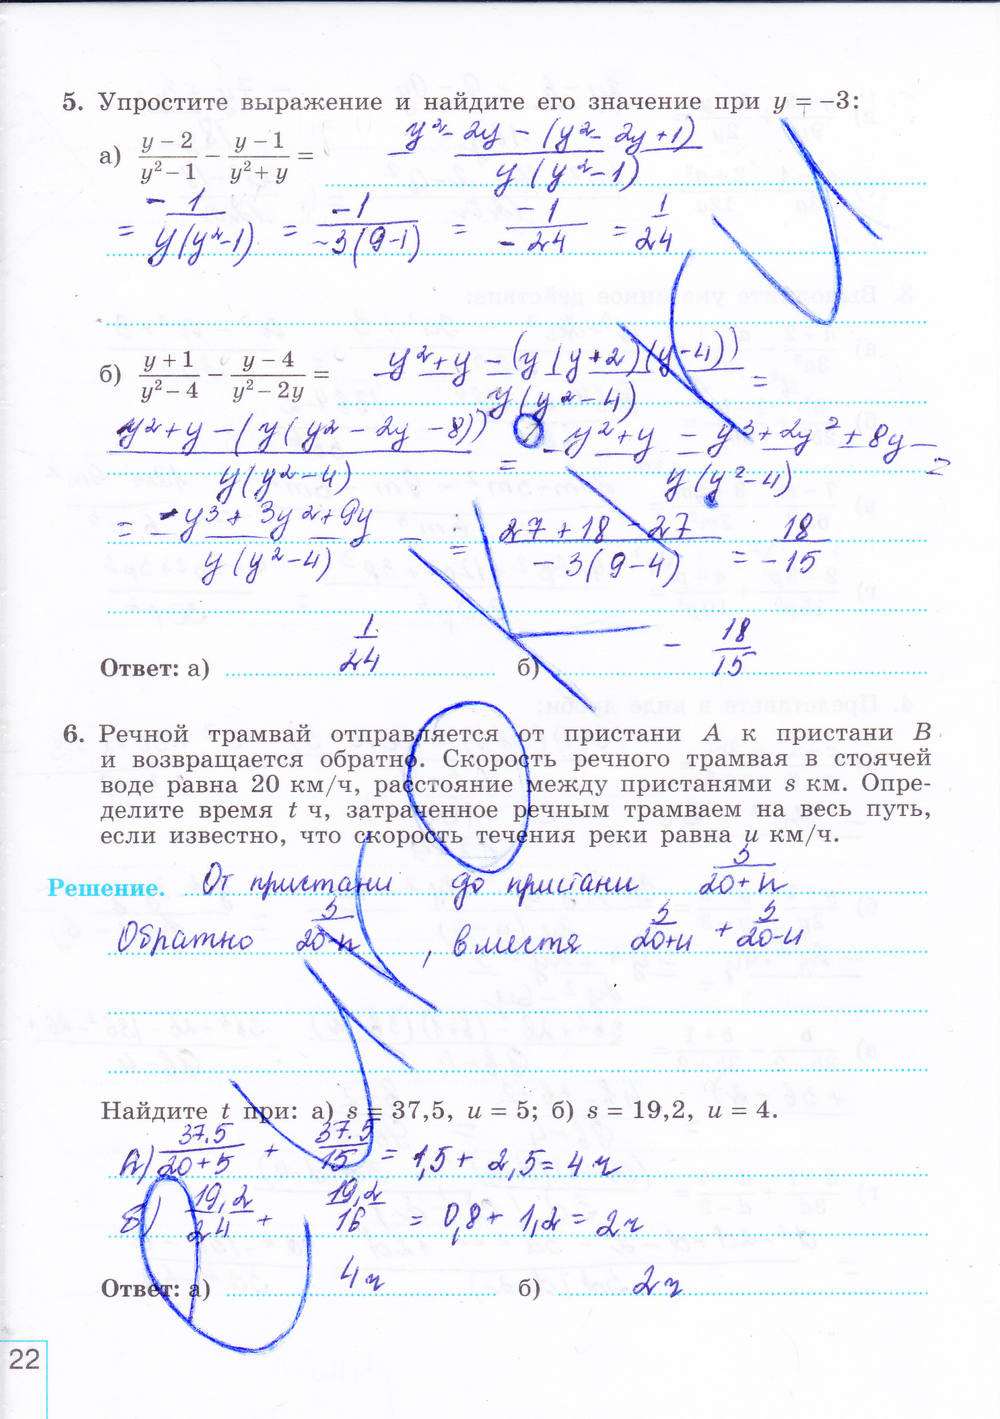 5. Упростите выражение и найдите его значение при y = −3:
а) (y − 2)/(y² − 1) − (y − 1)/(y² + y) = (y² - 2y - (y² - 2y + 1))/(y(y² - 1))
= -1/(y(y² - 1)) = -1/(-3(9 - 1)) = -1/-24 = 1/24
б) (y + 1)/(y² − 4) − (y − 4)/(y² − 2y) = (y² + y - (y(y + 2)(y - 4)))/(y(y² - 4)) =
(y² + y - (y(y² - 2y - 8)))/(y(y² - 4)) = (y² + y - y³ + 2y² + 8y)/(y(y² - 4)) =
= (-y³ + 3y² + 9y)/(y(y² - 4)) = (27 + 18 - 27)/(-3(9 - 4)) = 18/-15
Ответ: а) 1/24 б) - 18/15
6. Речной трамвай отправляется от пристани A к пристани B
и возвращается обратно. Скорость речного трамвая в стоячей
воде равна 20 км/ч, расстояние между пристанями s км. Опре-
делите время t ч, затраченное речным трамваем на весь путь,
если известно, что скорость течения реки равна u км/ч.
Решение. От пристани до пристани s/(20 + u)
Обратно s/(20 - u), вместя s/(20 + u) + s/(20 - u)
Найдите t при: а) s = 37,5, u = 5; б) s = 19,2, u = 4.
А) 37.5/(20 + 5) + 37.5/15 = 1,5 + 2,5 = 4 ч
Б) 19,2/24 + 19,2/16 = 0,8 + 1,2 = 2 ч
Ответ: а) 4 ч б) 2 ч
22